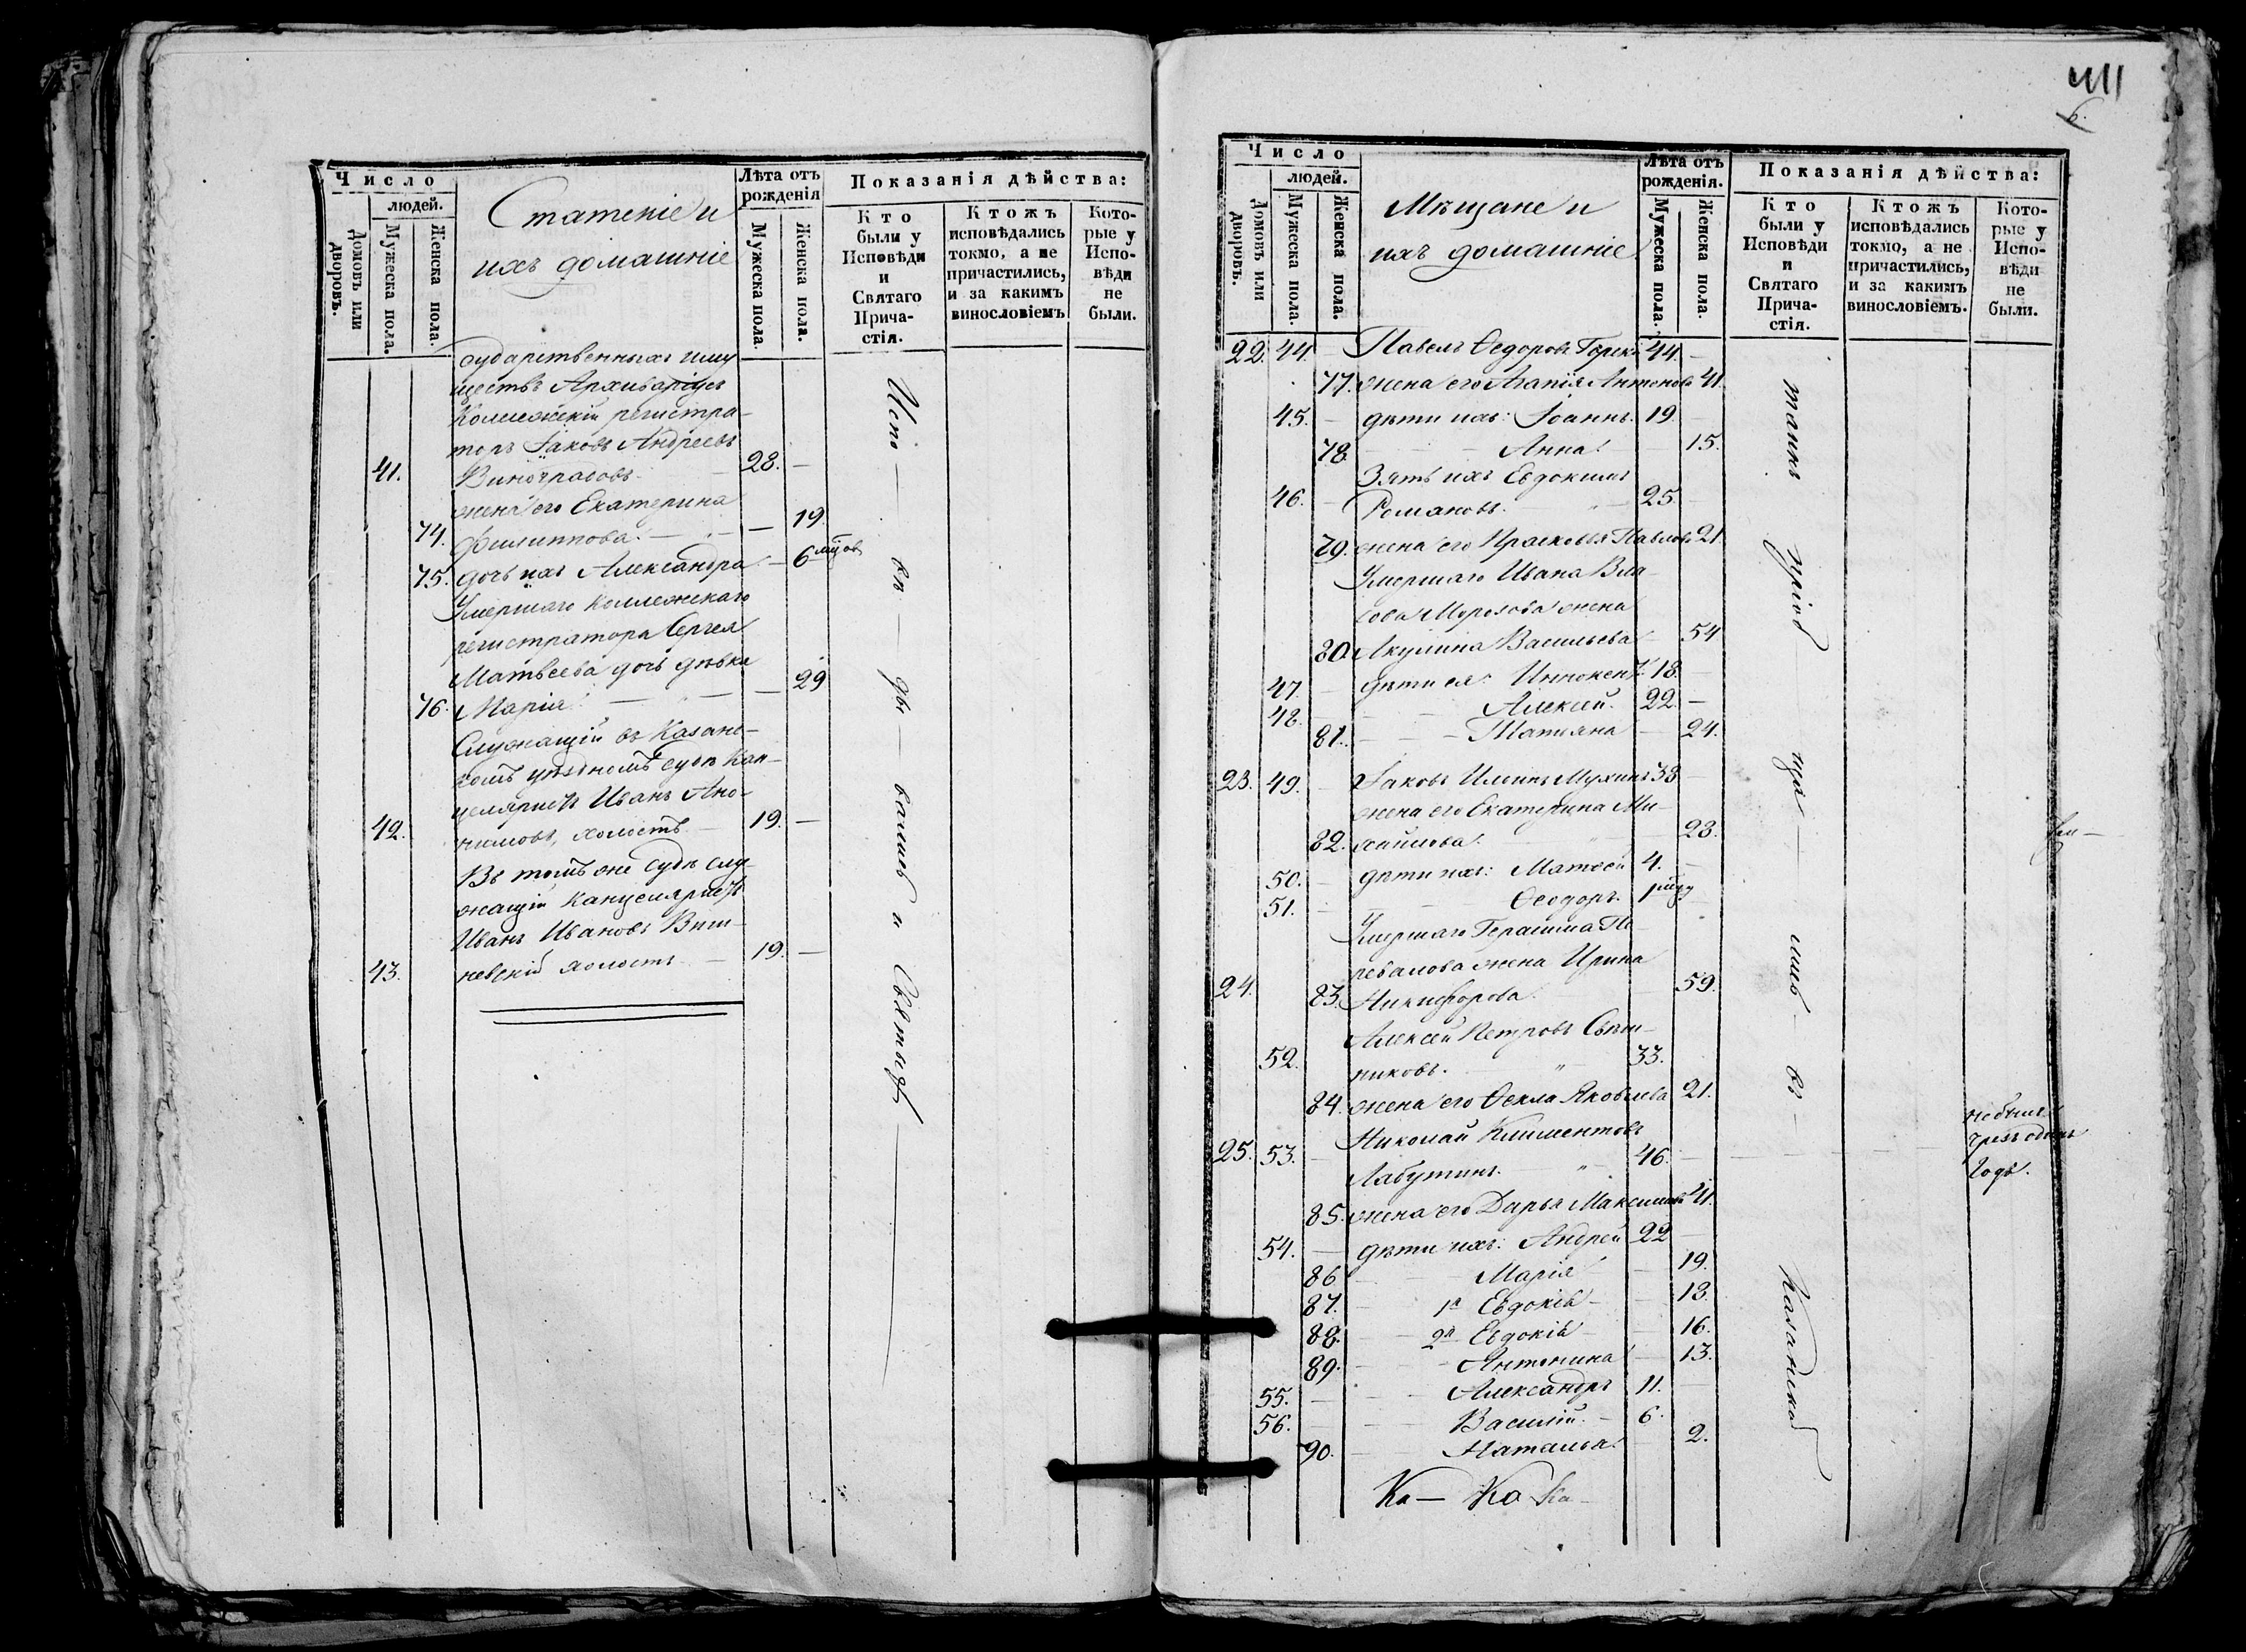 Число
людей.
Домовъ или дворовъ.
Мужеска пола.
Женска пола.
Статскіе и
ихъ домашніе
Лѣта отъ рожденія
Мужеска пола.
Женска пола.
Показанія дѣйства:
Кто были у Исповѣди и Святаго Прича-стія.
Ктожъ исповѣдались токмо, а не причастились, и за какимъ винословіемъ
Кото-рые у Испо-вѣди не были.
сударственныхъ иму
ществъ Архиваріусъ
Коллежскій регистра-
торъ Іаковъ Андреевъ
41. Виноградовъ. 28. —
жена его Екатерина
74. Филиппова. — — 19.
75. дочь ихъ Александра — 6 мцов
Умершаго Коллежскаго
регистратора Сергея
Матвеева дочь дѣвка
76. Марія. — — 29
Служащій въ Казанс-
комъ уѣздномъ судѣ Кан-
целяристъ Иванъ
42. холостъ — 19. —
Въ томъ же судѣ слу-
жащій Канцеляристъ
Иванъ Ивановъ Виш-
43. невскій холостъ — 19. —
Испо — вѣ — ды — вались и Святыхъ
411
6.
Число
людей.
Домовъ или дворовъ.
Мужеска пола.
Женска пола.
Мѣщане и
ихъ домашніе
Лѣта отъ рожденія.
Мужеска пола.
Женска пола.
Показанія дѣйства:
Кто были у Исповѣди и Святаго Прича-стія.
Ктожъ исповѣдались токмо, а не причастились, и за какимъ винословіемъ.
Кото-рые у Испо-вѣди не были.
22. 44. — Павелъ Ѳедоровъ 44. —
77. жена его Агапія Антонова 41.
45. — дѣти ихъ: Іоаннъ. 19. —
78. — — Анна. — 15.
Зять ихъ Евдокимъ
46. — Романовъ. 25. —
79. жена его Прасковья Павлова 21.
Умершаго Ивана Вла-
сова Морозова жена
80. Акулина Васильева — 54
47. — дѣти ея: Иннокент. 18. —
48. — — Алексей. 22. —
81. — — Татияна — 24.
23. 49. — Іаковъ Ильинъ Мухинъ 33 —
жена его Екатерина Ми-
82. хаилова. — 23.
50. — дѣти ихъ: Матѳей 4. —
51. — — Ѳеодоръ. 1
Умершаго Герасима Пе-
ревалова жена Ирина
24. 83. Никифорова. — 59.
Алексей Петровъ Свѣш-
52. никовъ. " 33. —
84. жена его Ѳекла Яковлева 21.
Николай Климентовъ
25. 53. — Лабутинъ. " 46. — — — —
не былъ
чрезъ одинъ
годъ.
85. жена его Дарья Максимова 41.
54. — дѣти ихъ: Андрей 22 —
86 — — Марія — 19.
87. — 1я Евдокія — — 18.
88. — 2я Евдокія — 16.
89. — — Антонина — 13.
55. — — Александръ 11. —
56. — — Василій. — 6. —
90. — — Наталья. — 2.
Ка — Ка Ка —
таинъ — — ща — лись — въ — Казанской